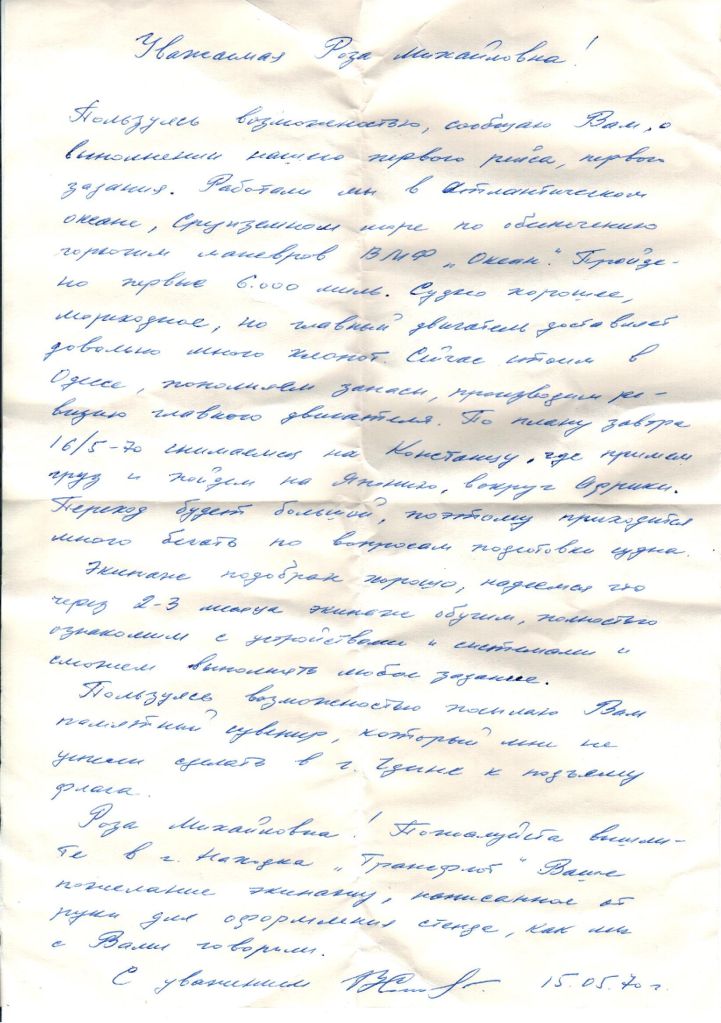 Уважаемая Роза Михайловна!
Пользуясь возможностью, сообщаю Вам, о
выполнении нашего первого рейса, первого
задания. Работали мы в Атлантическом
океане, Средиземном море по обеспечению
горючим маневров ВМФ „Океан". Пройде-
но первые 6.000 миль. Судно хорошее,
мореходное, но главный двигатель доставляет
довольно много хлопот. Сейчас стоим в
Одессе, пополняем запасы, производим ре-
визию главного двигателя. По плану завтра
16/5-70 снимаемся на Констанцу, где примем
груз и пойдем на Японию, вокруг Африки.
Переход будет большой, поэтому приходится
много бегать по вопросам подготовки судна.
Экипаж подобран хорошо, надеемся что
через 2-3 месяца экипаж обучим, полностью
ознакомим с устройствами и системами и
сможем выполнять любое задание.
Пользуясь возможностью посылаю Вам
памятный сувенир, который мы не
успели сделать в г. Гдыне к подъему
флага.
Роза Михайловна! Пожалуйста вышли-
те в г. Находка „Трансфлот" Ваше
пожелание экипажу, написанное от
руки для оформления стенда, как мы
с Вами говорили.
С уважением 15.05.70 г.